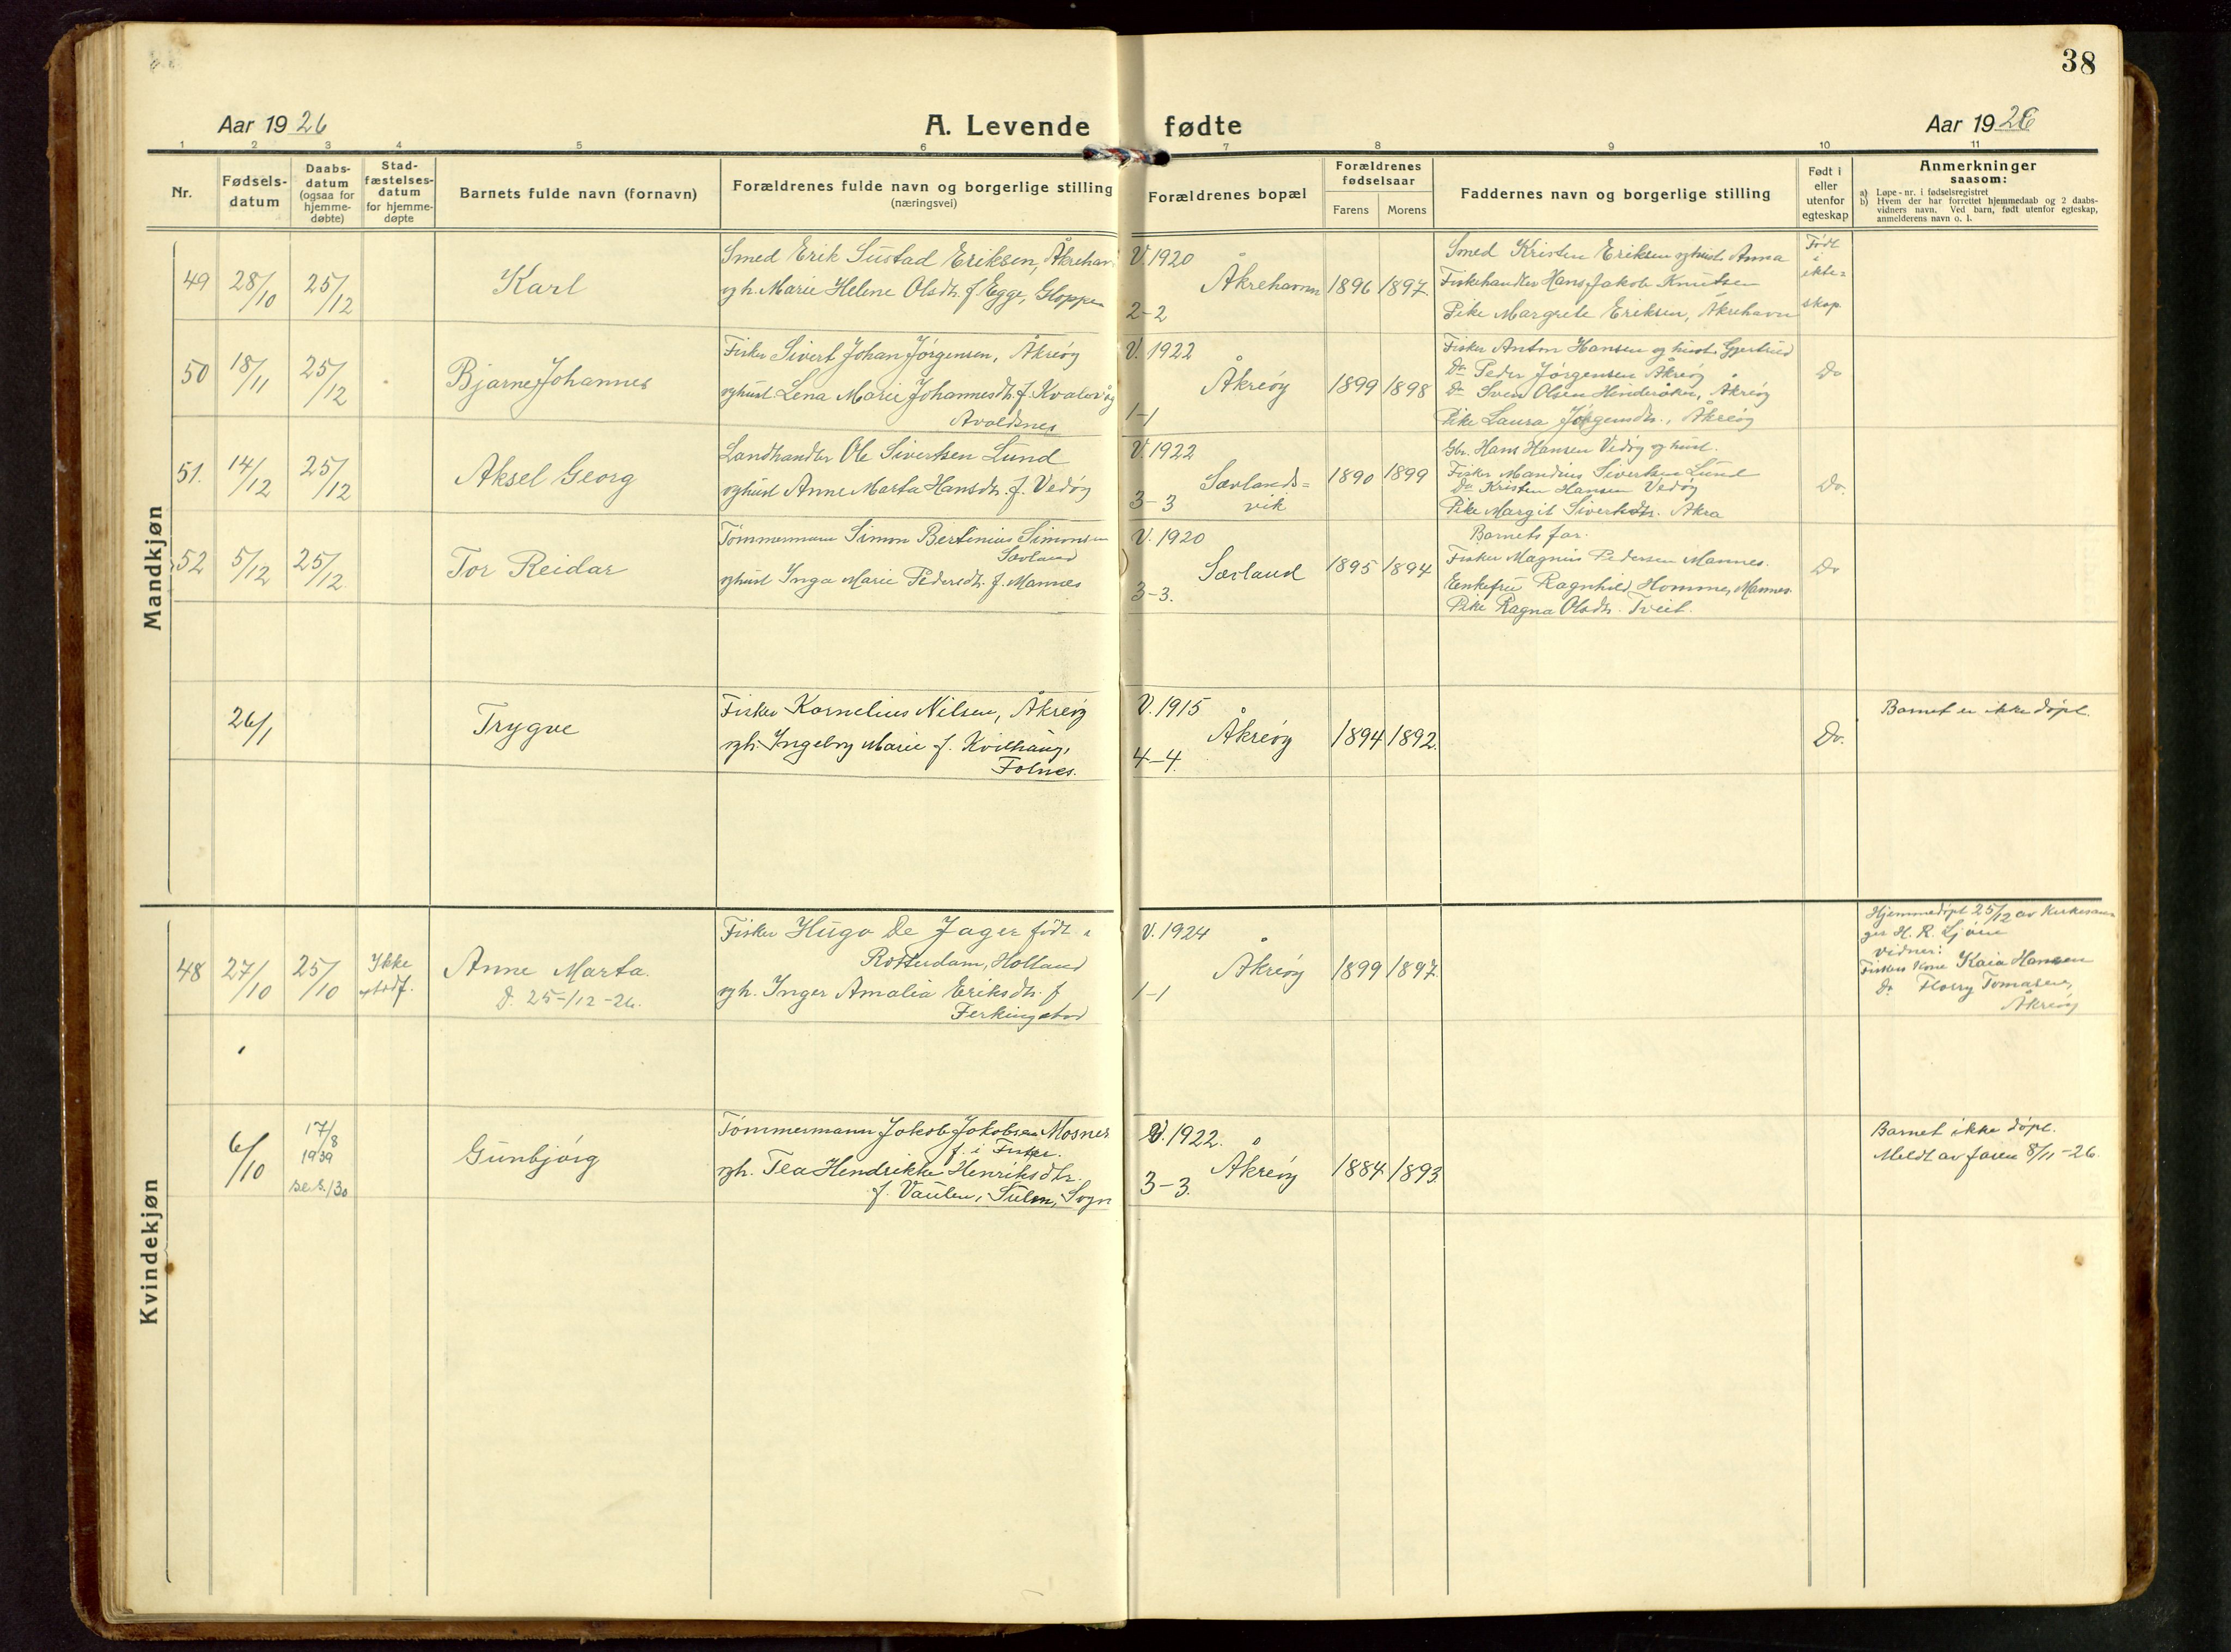 38
Aar 1926
A. Levende fødte
Aar 1926
1 2 3 4 5 6 7 8 9 10 11
Nr.
Fødsels-
datum
Daabs-
datum
(ogsaa for
hjemme-
døbte)
Stad-
fæstelses-
datum
for hjemme-
døpte
Barnets fulde navn (fornavn)
Forældrenes fulde navn og borgerlige stilling
(næringsvei)
Forældrenes bopæl
Forældrenes
fødselsaar
Farens Morens
Faddernes navn og borgerlige stilling
Født i
eller
utenfor
egteskap
Anmerkninger
saasom:
a) Løpe-nr. i fødselsregistret
b) Hvem der har forrettet hjemmedaab og 2 daabs-
vidners navn. Ved barn, født utenfor egteskap,
anmelderens navn o. l.
Mandkjøn
49
28/10
25/12
Karl
Smed Erik Sustad Eriksen, Åkrehavn
og h. Marie Helene Olsdtr. f. Egge, Gloppen
V. 1920
Åkrehavn
2-2
1896
1897
Smed Kristen Eriksen og hust. Anna
Fiskehandler Hans Jakob Knutsen
Pike Margrete Eriksen, Åkrehavn
Født
i
ekte=
skap.
50
18/11
25/12
Bjarne Johannes
Fisker Sivert Johan Jørgensen, Åkreøy
og hust. Lena Marie Johannesdtr. f. Kvalevåg
Avaldsnes
V. 1922
Åkreøy
1-1
1899
1898
Fisker Anton Hansen og hust. Gjertrud
Do Peder Jørgensen Åkreøy
Do Sven Olsen Hinderåker, Åkreøy
Pike Laura Jørgensdtr., Åkreøy
Do
51.
14/12
25/12
Aksel Georg
Landhandler Ole Sivertsen Lund
og hust Anne Marta Hansdtr. f. Vedøy
V. 1922
Sævlands=
vik
3-3
1890
1899
Gbr. Hans Hansen Vedøy og hust.
Fisker Mandius Sivertsen Lund
Do Kristen Hansen Vedøy
Pike Margit Sivertsdtr. Åkra
Do.
52
5/12
25/12
Tor Reidar
Tømmermann Simon Bertinius Simonsen
Sævland
og hust Inga Marie Pedersdtr. f. Mannes
V. 1920
Sævland
3-3.
1895
1894
Barnets far.
Fisker Magnus Pedersen Mannes.
Enkefru Ragnhild Homme, Mannes
Pike Ragna Olsdtr. Tveit.
Do
26/1
Trygve
Fisker Kornelius Nilsen, Åkreøy
og h. Ingeborg Marie f. Kvilhaug,
Folnes.
V. 1915
Åkreøy
4-4.
1894
1892.
Do.
Barnet er ikke døpt.
Kvindekjøn
48
27/10
25/10
Ikke
stadf.
Anne Marta.
D. 25-/12-26.
Fisker Hugo De Jager født i
Rotterdam, Holland
og h. Inger Amalia Eriksdtr. f
Ferkingstad
V. 1924
Åkreøy
1-1
1899
1897.
Hjemmedøpt 25/12 av Kirkesan-
ger H. R.
Vidner:
Fiskers Kone Kaia Hansen
Do Florry Tomasen,
Åkreøy
6/10
17/8
1939
se s. 130
Gunbjørg
Tømmermann Jakob Jakobsen Mosnes
f. i Fister.
og h. Tea Hendrikke Henriksdtr.
f. Vaulen, Sulen, Sogn
V. 1922.
Åkreøy
3-3.
1884
1893
Barnet ikke døpt.
Meldt av faren 8/11-26.